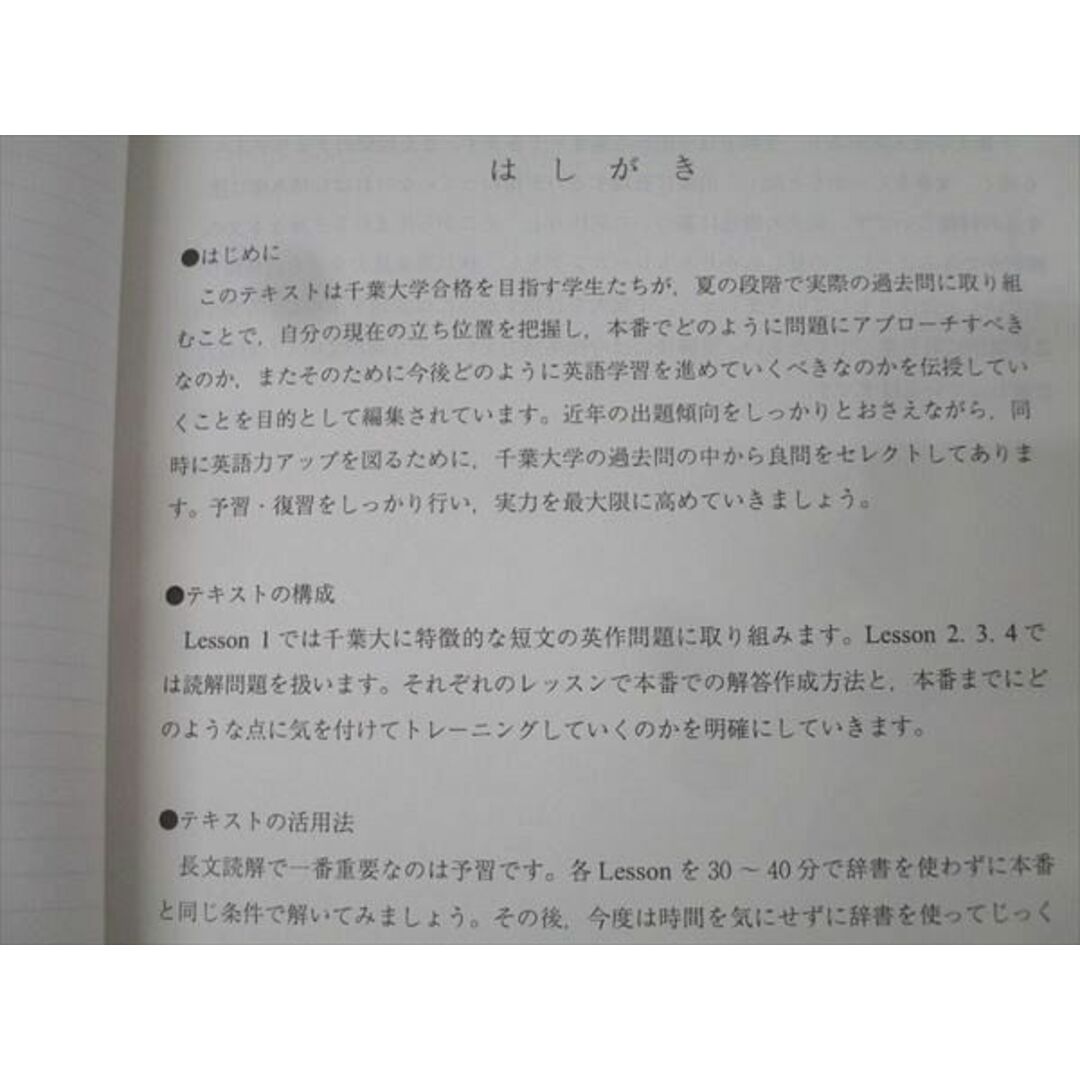 はしがき
●はじめに
このテキストは千葉大学合格を目指す学生たちが，夏の段階で実際の過去問に取り組
むことで，自分の現在の立ち位置を把握し，本番でどのように問題にアプローチすべき
なのか，またそのために今後どのように英語学習を進めていくべきなのかを伝授してい
くことを目的として編集されています。近年の出題傾向をしっかりとおさえながら，同
時に英語力アップを図るために，千葉大学の過去問の中から良問をセレクトしてありま
す。予習・復習をしっかり行い，実力を最大限に高めていきましょう。
●テキストの構成
Lesson 1では千葉大に特徴的な短文の英作問題に取り組みます。Lesson 2. 3. 4で
は読解問題を扱います。それぞれのレッスンで本番での解答作成方法と，本番までにど
のような点に気を付けてトレーニングしていくのかを明確にしていきます。
●テキストの活用法
長文読解で一番重要なのは予習です。各Lessonを30～40分で辞書を使わずに本番
と同じ条件で解いてみましょう。その後，今度は時間を気にせずに辞書を使ってじっく